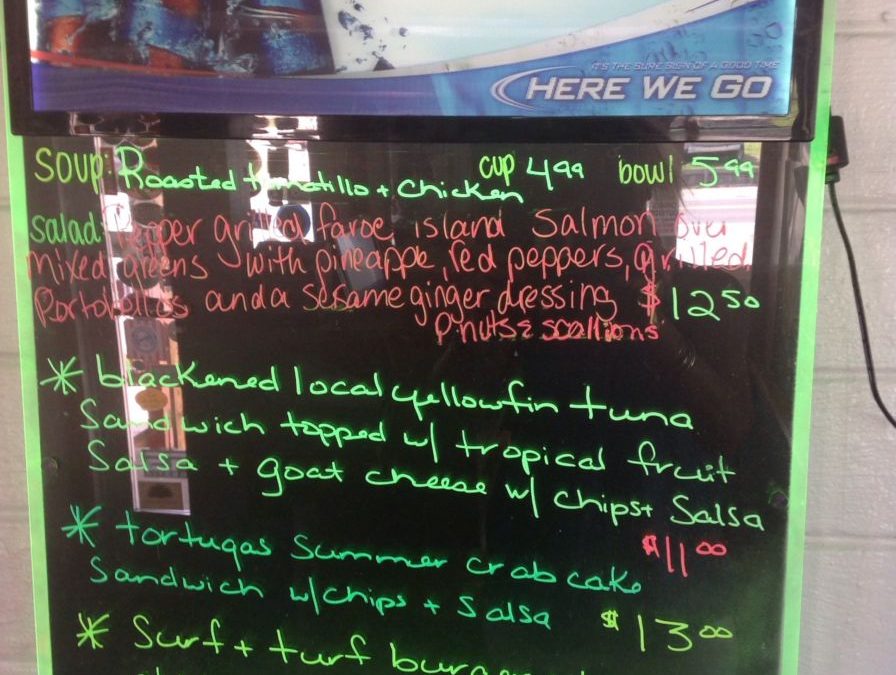 IT'S THE SURE SIGN OF A GOOD TIME
HERE WE GO
Soup: Roasted tomatillo + chicken cup 499 bowl 599
Salad: Pepper grilled faroe island Salmon over
mixed greens with pineapple, red peppers, grilled
Portobellos and a sesame ginger dressing $1250
Pnuts & scallions
* blackened local yellowfin tuna
Sandwich topped w/ tropical fruit
Salsa + goat cheese w/ chips + Salsa
$1100
* tortugas Summer crab cake
Sandwich w/chips + Salsa $1300
* Surf + turf